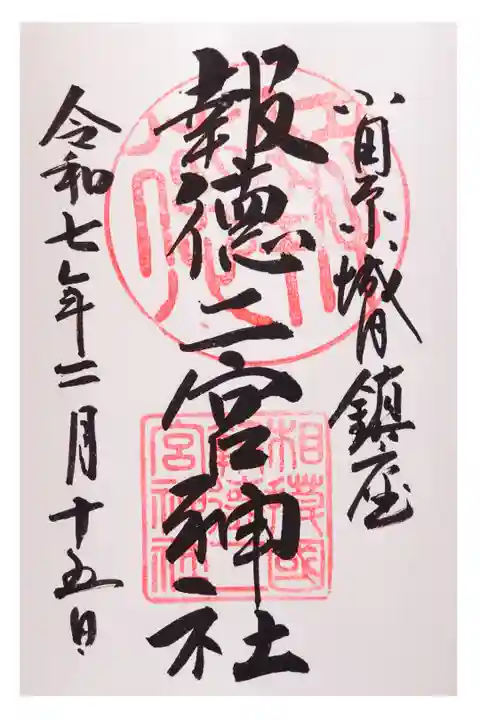 小田原城内鎮座
報徳二宮神社
令和七年二月十五日
相模國
報徳二
宮神社